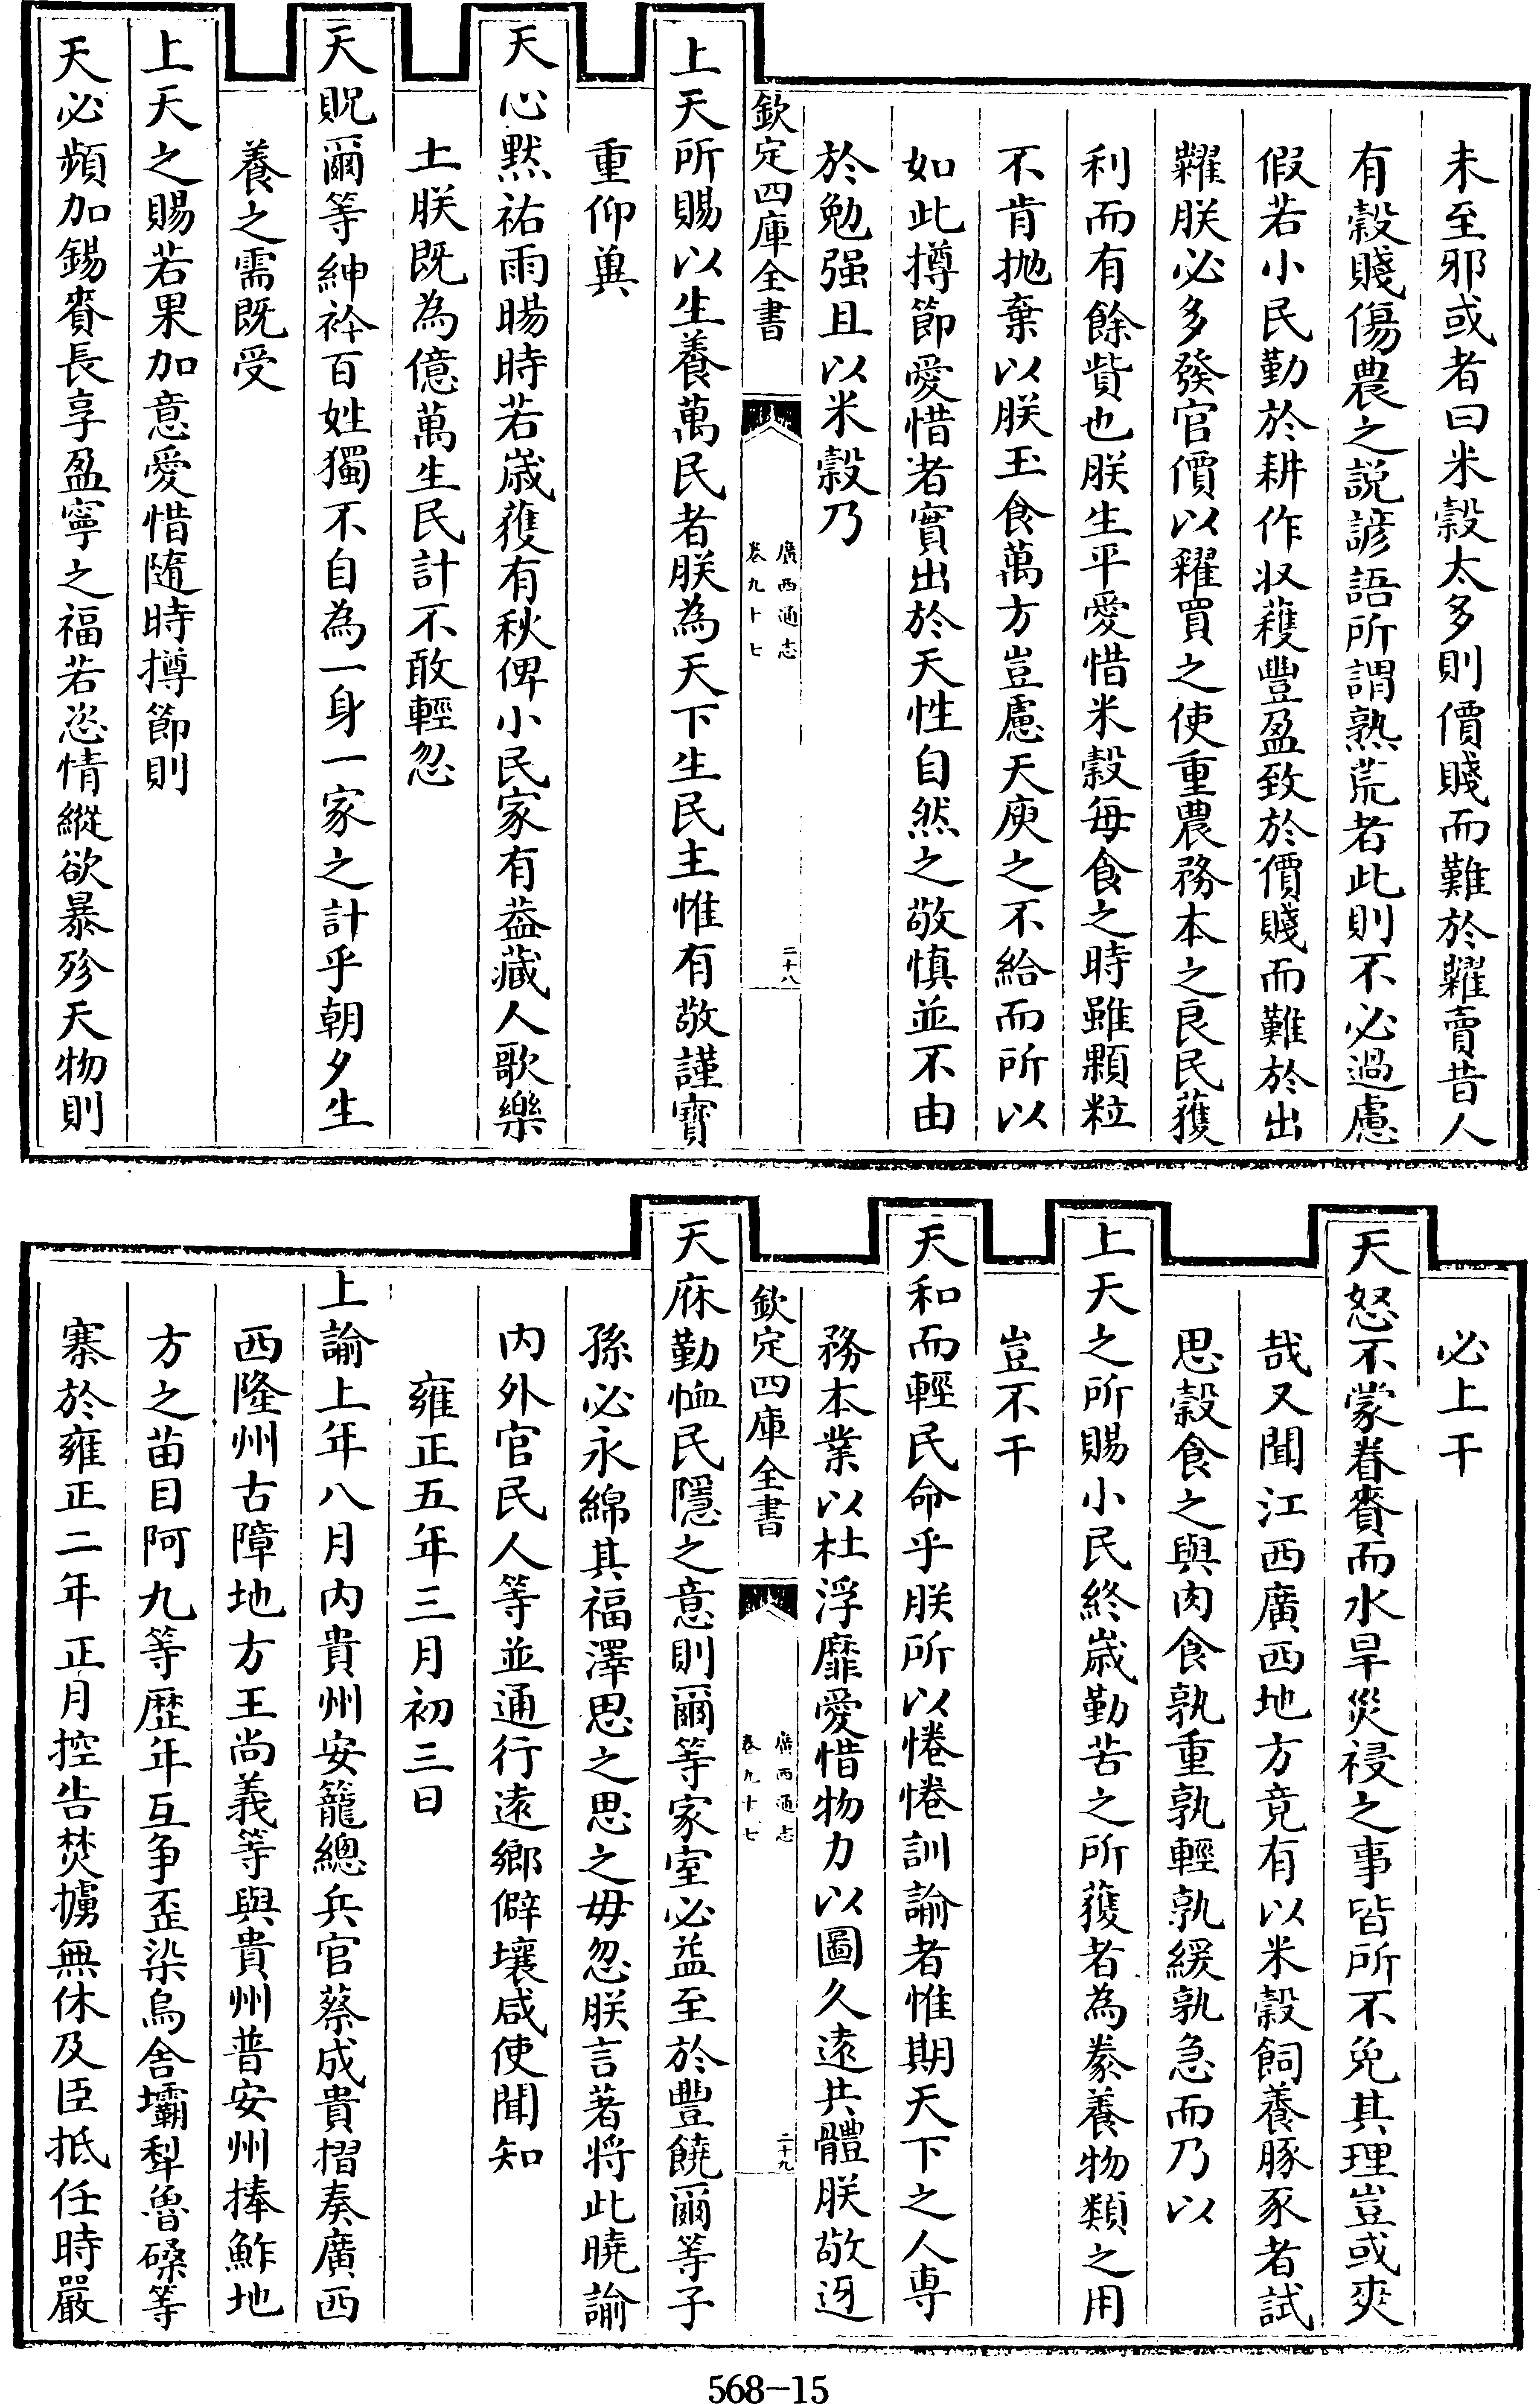 未至邪或者曰米穀太多則價賤而難於糶賣昔人
有穀賤傷農之説諺語所謂熟荒者此則不必過慮
假若小民勤於耕作収穫豐盈致於價賤而難於出
糶朕必多發官價以糴買之使重農務本之良民獲
利而有餘貲也朕生平愛惜米穀每食之時雖顆粒
不肯抛棄以朕玉食萬方豈慮天庾之不給而所以
如此撙節愛惜者實出於天性自然之敬慎並不由
於勉强且以米穀乃
欽定四庫全書
廣西通志
卷九十七
二十八
上天所賜以生養萬民者朕為天下生民主惟有敬謹寳
重仰兾
天心黙祐雨暘時若歳穫有秋俾小民家有葢藏人歌樂
土朕既為億萬生民計不敢輕忽
天貺爾等紳衿百姓獨不自為一身一家之計乎朝夕生
養之需既受
上天之賜若果加意愛惜隨時撙節則
天必頻加錫賚長享盈寧之福若恣情縱欲暴殄天物則
必上干
天怒不蒙眷賚而水旱災祲之事皆所不免其理豈或爽
哉又聞江西廣西地方竟有以米穀飼養豚豕者試
思穀食之與肉食孰重孰輕孰緩孰急而乃以
上天之所賜小民終歳勤苦之所獲者為豢養物類之用
豈不干
天和而輕民命乎朕所以惓惓訓諭者惟期天下之人専
務本業以杜浮靡愛惜物力以圖久遠共體朕敬迓
欽定四庫全書
廣西通志
卷九十七
二十九
天庥勤恤民隱之意則爾等家室必益至於豐饒爾等子
孫必永綿其福澤思之思之毋忽朕言著將此曉諭
内外官民人等並通行遠鄉僻壤咸使聞知
雍正五年三月初三日
上諭上年八月内貴州安籠總兵官蔡成貴摺奏廣西
西隆州古障地方王尚義等與貴州普安州捧鮓地
方之苗目阿九等歴年互争歪染烏舎壩犁魯磉等
寨於雍正二年正月控告焚擄無休及臣抵任時嚴
568-15